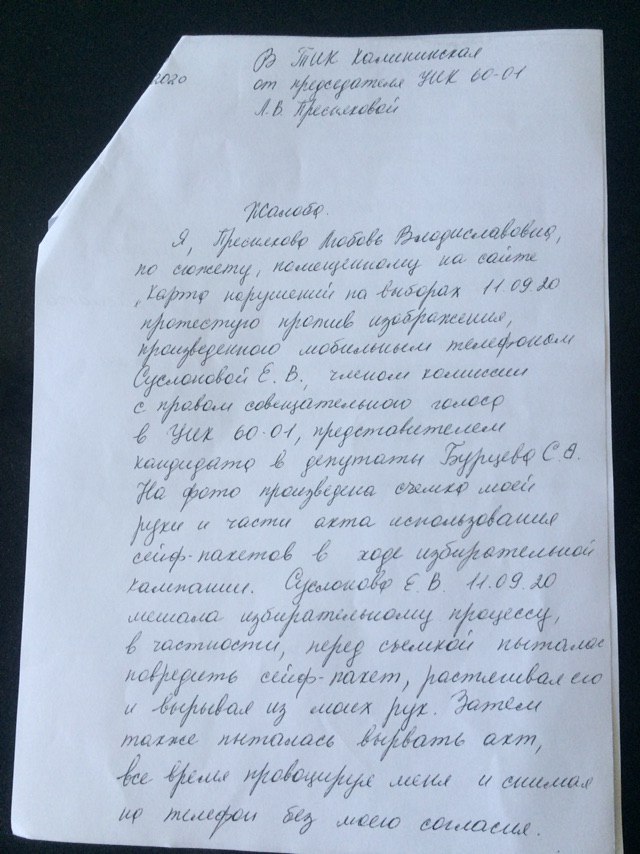 2020
В ТИК Калининская
от председателя УИК 60-01
Л.В. Пресняковой
Жалоба.
Я, Преснякова Любовь Владиславовна,
по сюжету, помещенному на сайте
"Карта нарушений на выборах 11 09.20
протестую против изображения,
произведенного мобильным телефоном
Суслоновой Е. В., членом комиссии
с правом совещательного голоса
в УИК 60-01, представителем
кандидата в депутаты Бурцева С.А.
На фото произведена съемка моей
руки и части акта использования
сейф-пакетов в ходе избирательной
кампании. Суслонова Е.В. 11.09.20
мешала избирательному процессу,
в частности, перед съемкой пыталас
повредить сейф-пакет, растягивая его
и вырывая из моих рук. Затем
также пыталась вырвать акт,
все время провоцируя меня и снимая
на телефон без моего согласия.